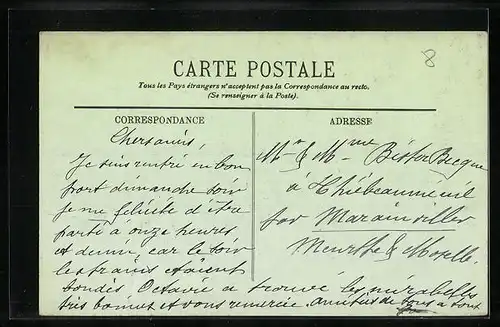 8
CARTE POSTALE
Tous les Pays étrangers n'acceptent pas la Correspondance au recto.
(Se renseigner à la Poste).
CORRESPONDANCE
Chers amis,
Je suis rentré en bon
port dimanche soir
je me félicite d'être
parti à onze heures
et demie, car le soir
les trains étaient
bondés Octavie a trouvé les mirabelles
très bonnes et vous remercie. amitiés de tous à tous
ADRESSE
Mr & Mme Becque
à Thiébauménil
par Marainviller
Meurthe & Moselle